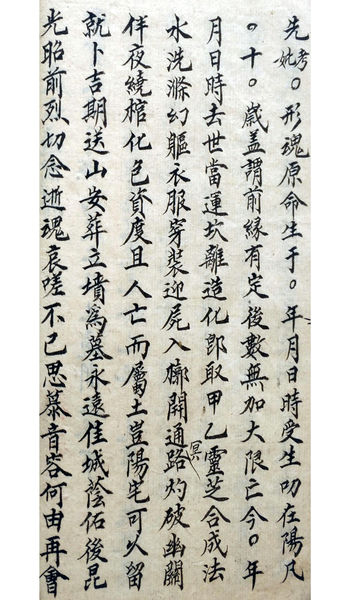 先考妣○形魂原命生于○年月日時受生叨在陽凡
○十○歲盖謂前緣有定後數無加大限亡今○年
月日時去世當運坎離造化即取甲乙靈芝合成法
水洗滌幻軀衣服穿裝迎屍入廓開通冥路灼破幽關
伴夜繞棺化色資度且人亡而屬土豈陽宅可以留
就卜吉期送山安葬立墳為墓永遠佳城蔭佑後昆
光昭前烈切念逝魂哀嗟不已思慕音容何由再會